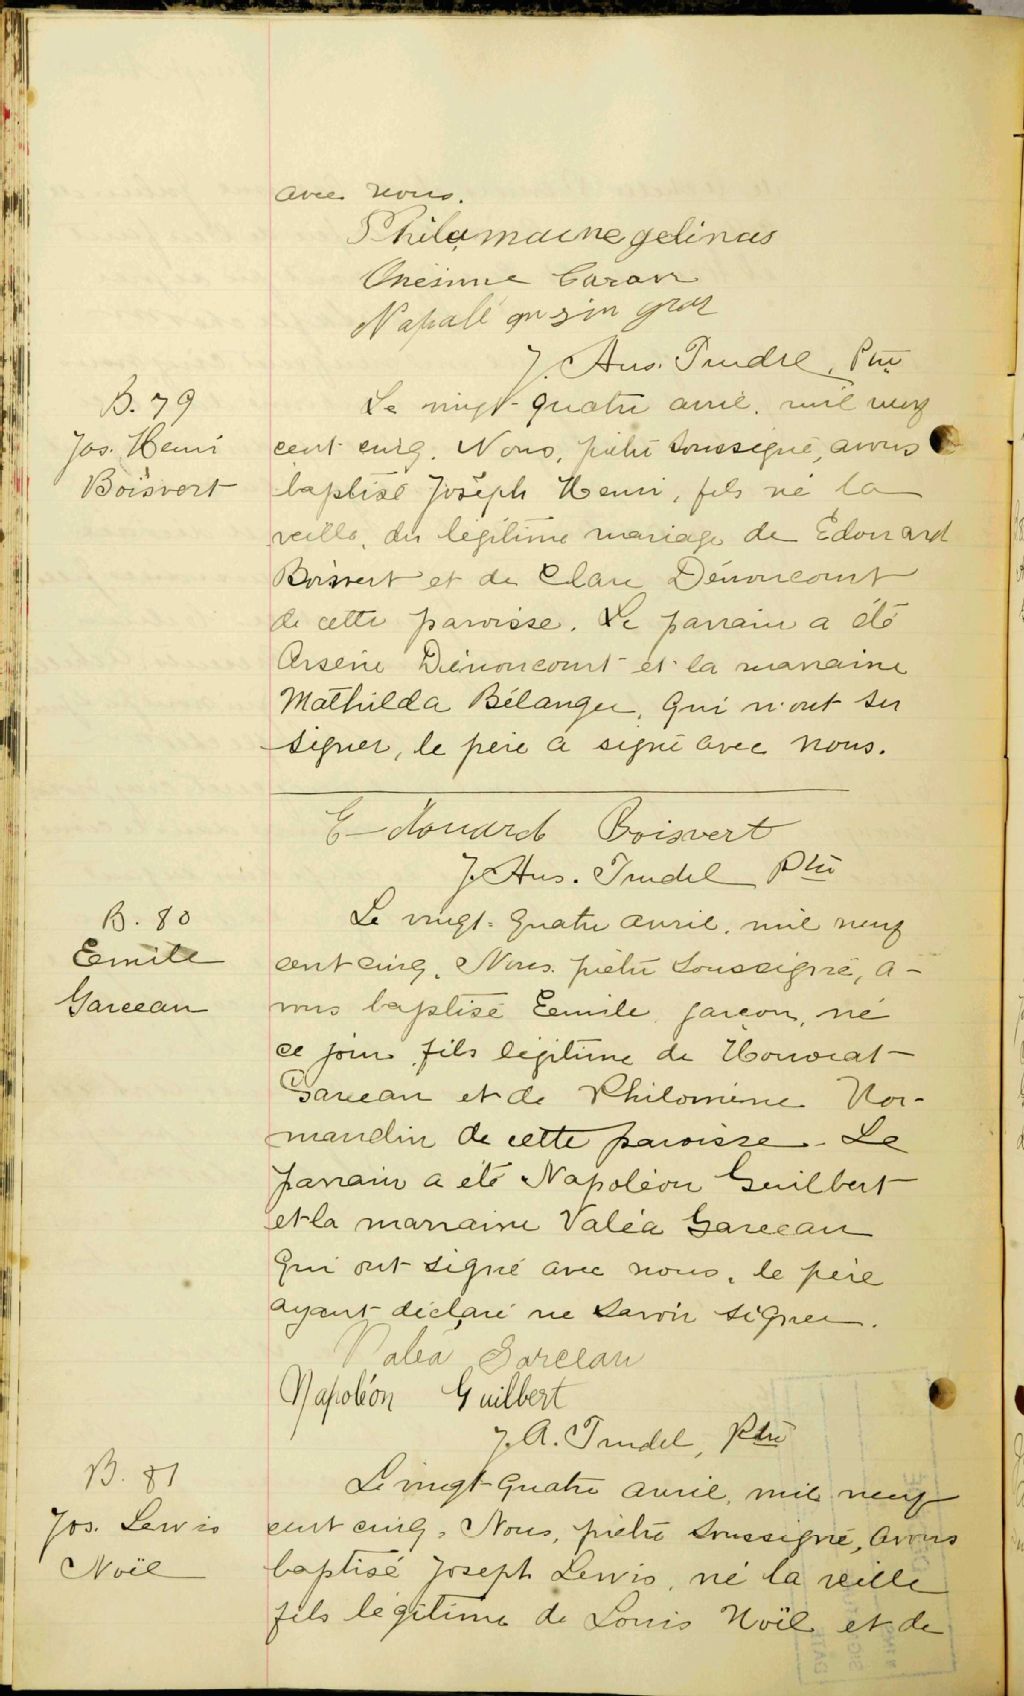 avec nous.
Philomaine gelinas
Onésime Caron
J. Hus. Trudel, Ptre
B. 79
Jos. Henri
Boisvert
Le vingt-quatre avril, mil neuf
cent cinq, Nous, prêtre soussigné, avons
baptisé Joseph Henri, fils né la
veille, du légitime mariage de Edouard
Boisvert et de Clare Dénoncourt
de cette paroisse. Le parrain a été
Arsène Dénoncourt et la marraine
Mathilda Bélanger, qui n'ont su
signer, le père a signé avec nous.
Edouard Boisvert
J. Hus. Trudel Ptre
B. 80
Eemile
Garceau
Le vingt-quatre avril, mil neuf
cent cinq, Nous, prêtre soussigné, a-
vons baptisé Eemile, garçon, né
ce jour, fils légitime de Honorat
Garceau et de Philomène Nor-
mandin de cette paroisse. Le
parrain a été Napoléon Guilbert
et la marraine Valéa Garceau
qui ont signé avec nous, le père
ayant déclaré ne savoir signer.
Valéa Garceau
Napoléon Guilbert
J. A. Trudel, Ptre
B. 81
Jos. Lewis
Noël
Le vingt-quatre avril, mil neuf
cent cinq, Nous, prêtre soussigné, avons
baptisé Joseph Lewis, né la veille
fils légitime de Louis Noël et de